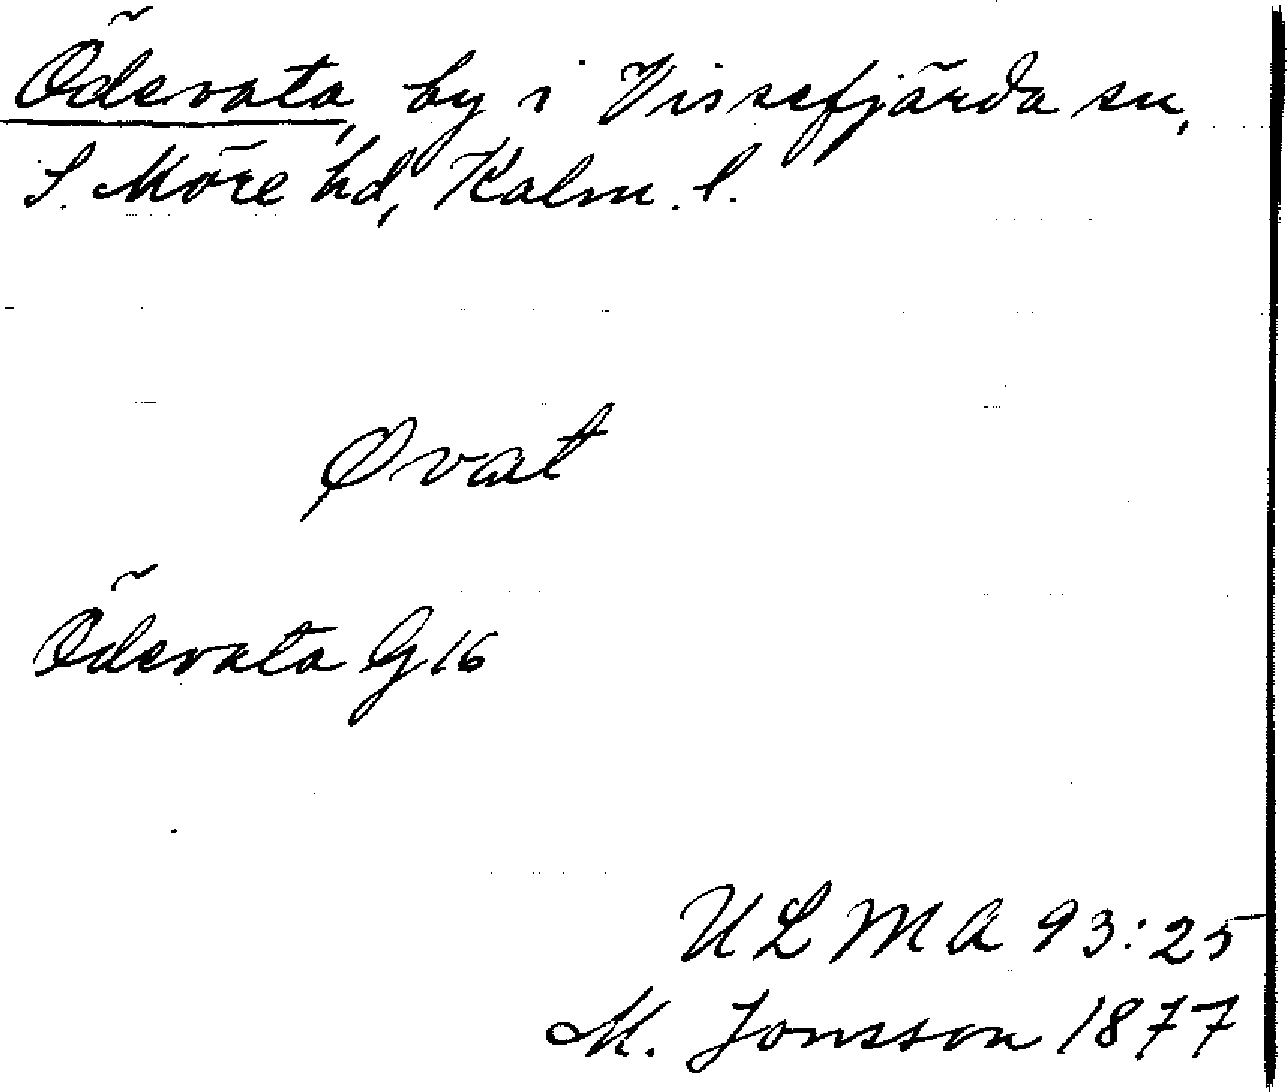 Ödevata, by i Vissefjärda sn,
S. Möre hd, Kalm. l.
Øvat
Ödevata G 16
ULMA 93:25
M. Jonsson 1877